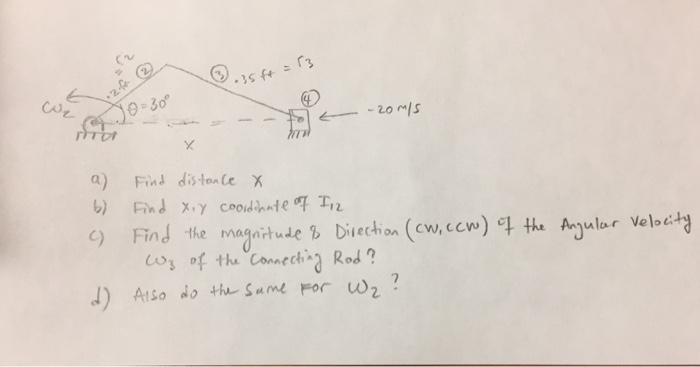 .2 ft = r2
②
③ .35 ft = r3
ω2
θ=30°
④
-20 m/s
x
a) Find distance x
b) Find x,y coordinate of I12
c) Find the magnitude & Direction (cw, ccw) of the Angular Velocity
ω3 of the Connecting Rod?
d) Also do the same for ω2?